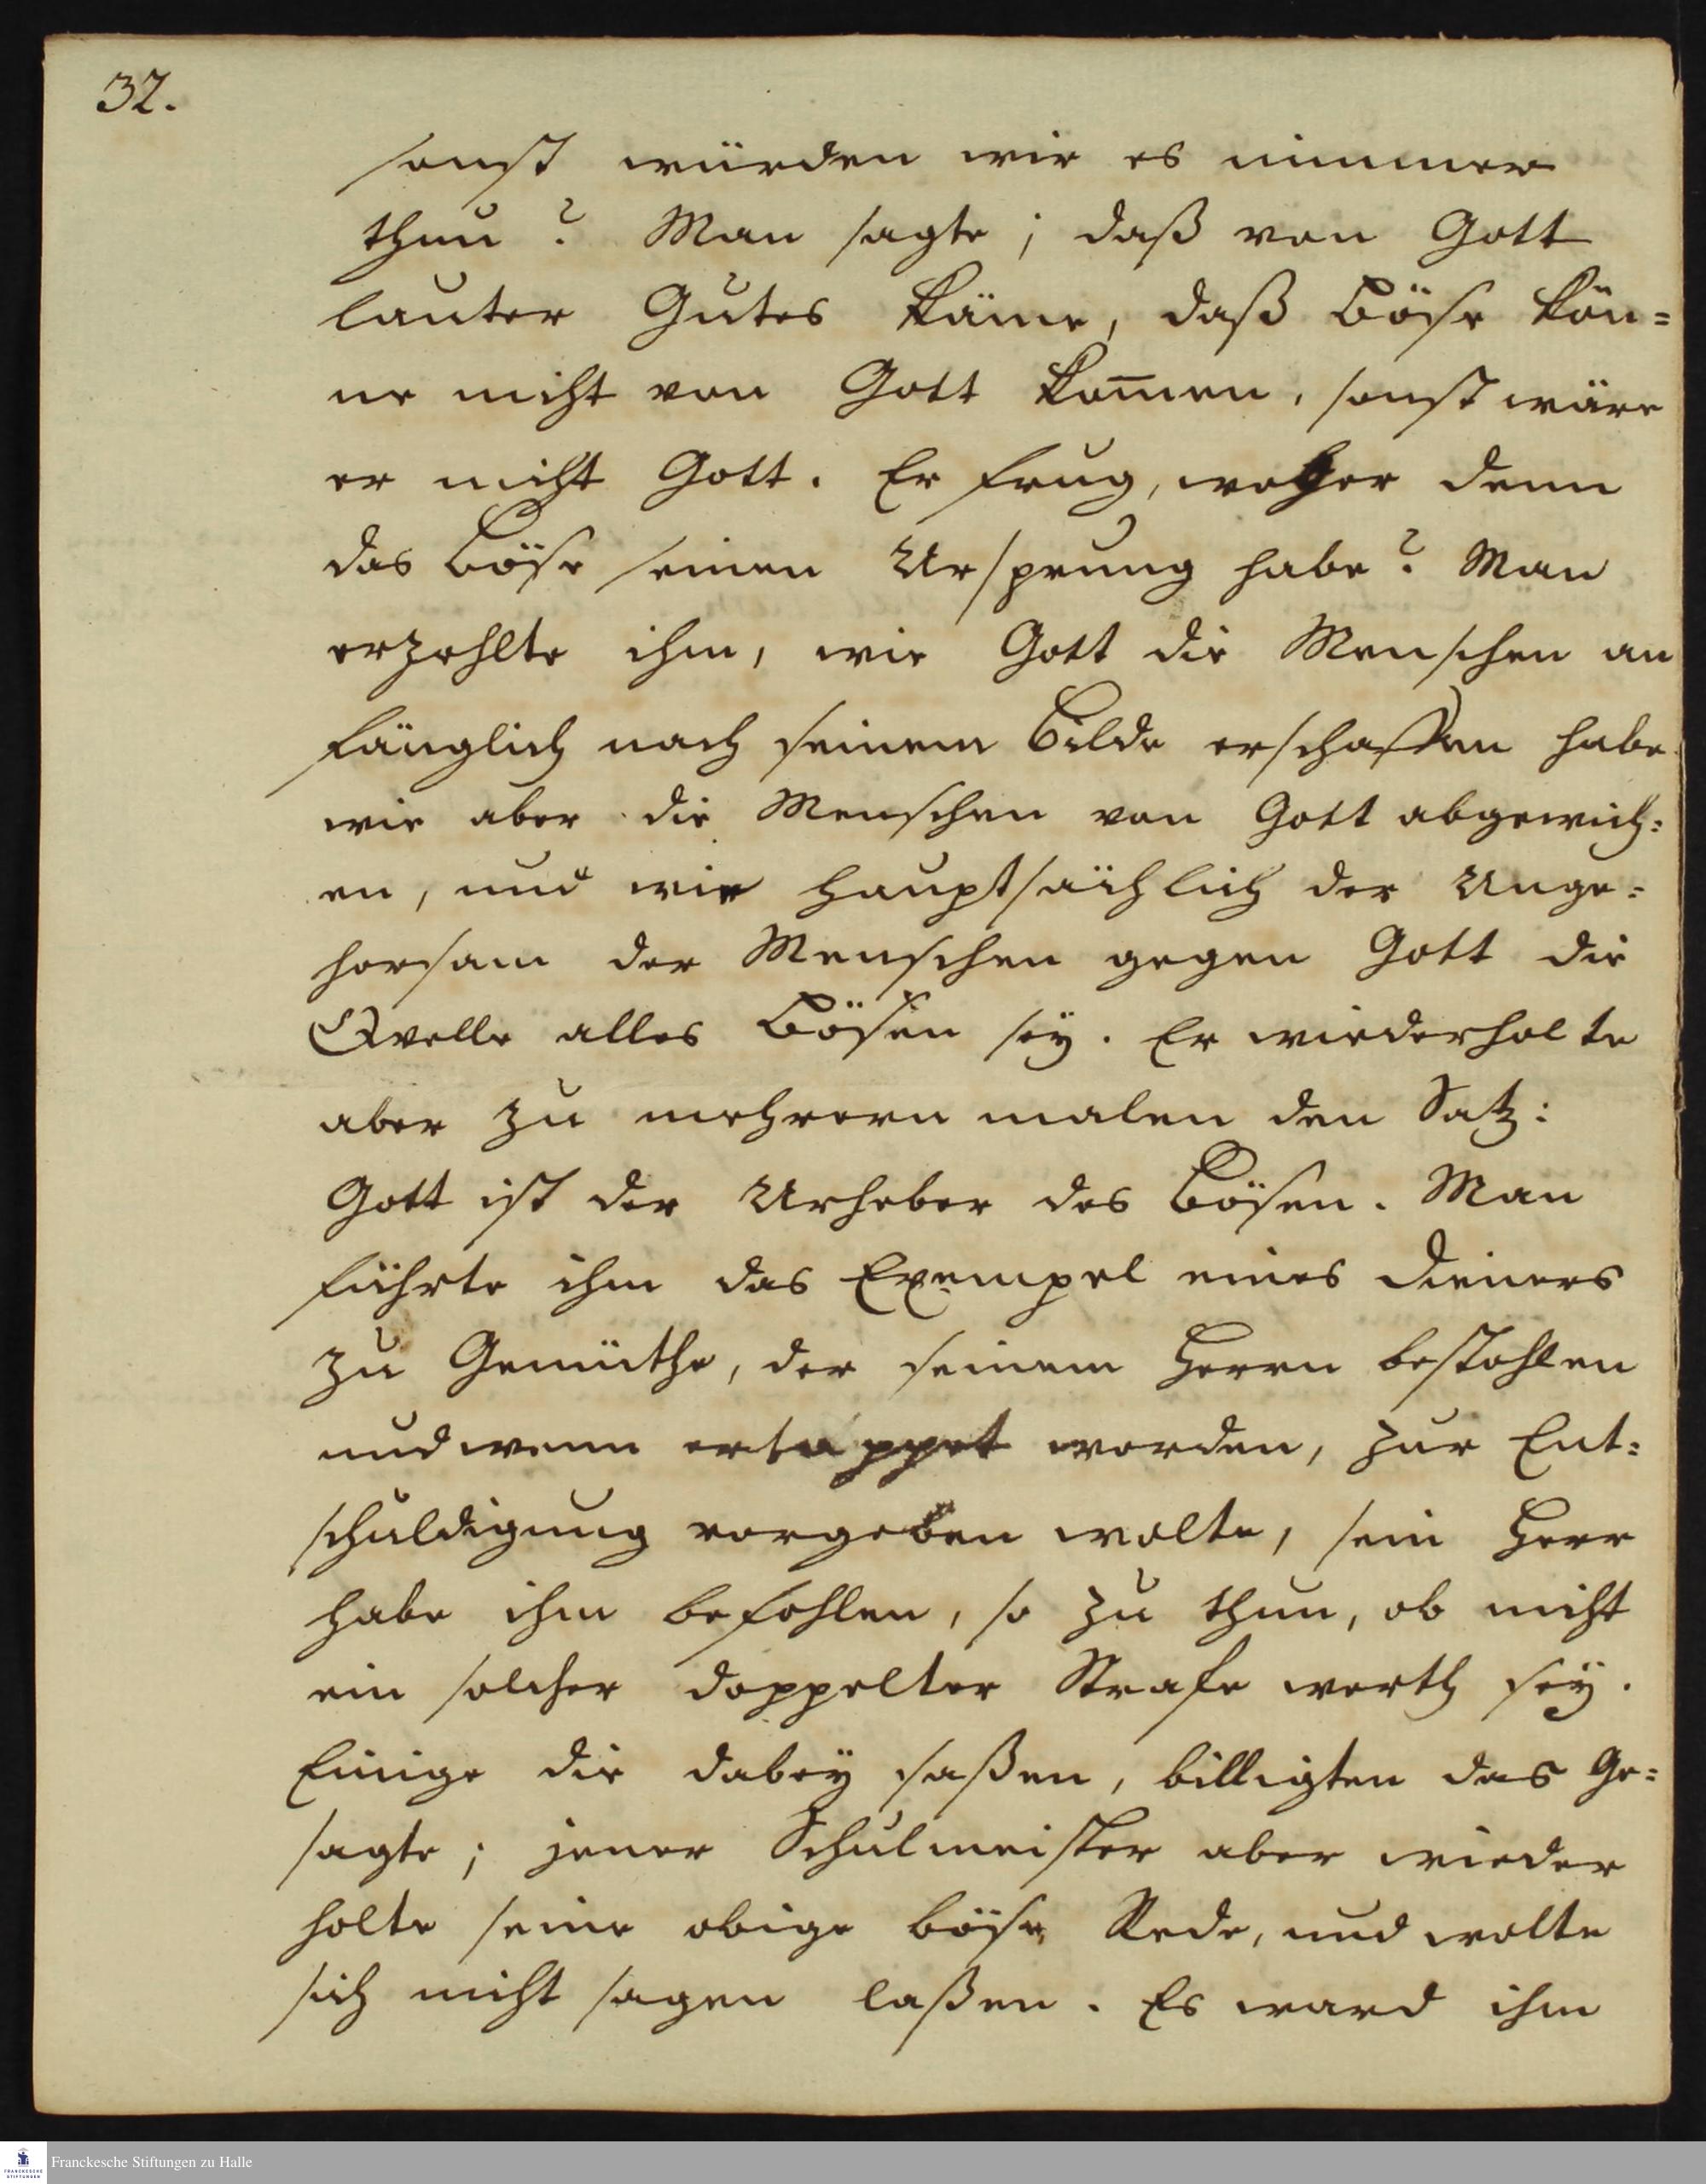 32.
sonst würden wir es nimmer
thun? Man sagte; daß von Gott
lauter Gutes käme, daß Böse kön=
ne nicht von Gott kom̅en, sonst wäre
er nicht Gott. Er frug, woher denn
das Böse seinen Ursprung habe? Man
erzehlte ihm, wie Gott die Menschen an
fänglich nach seinem Bilde erschaffen habe
wie aber die Menschen von Gott abgewich=
en, und wie hauptsächlich der Unge=
horsam der Menschen gegen Gott die
Qvelle alles Bösen sey. Er wiederholte
aber zu mehrern malen den Satz:
Gott ist der Urheber des Bösen. Man
führte ihm das Exempel eines Dieners
zu Gemüthe, der seinem Herrn bestohlen
und wenn ertappet worden, zur Ent=
schuldigung vorgeben wolte, sein Herr
habe ihm befohlen, so zu thun, ob nicht
ein solcher doppelter Strafe werth sey.
Einige die dabey saßen, billigten das Ge=
sagte; jener Schulmeister aber wieder
holte seine obige böse Rede, und wolte
sich nicht sagen laßen. Es ward ihm
Franckesche Stiftungen zu Halle
FRANCKESCHE
STIFTUNGEN